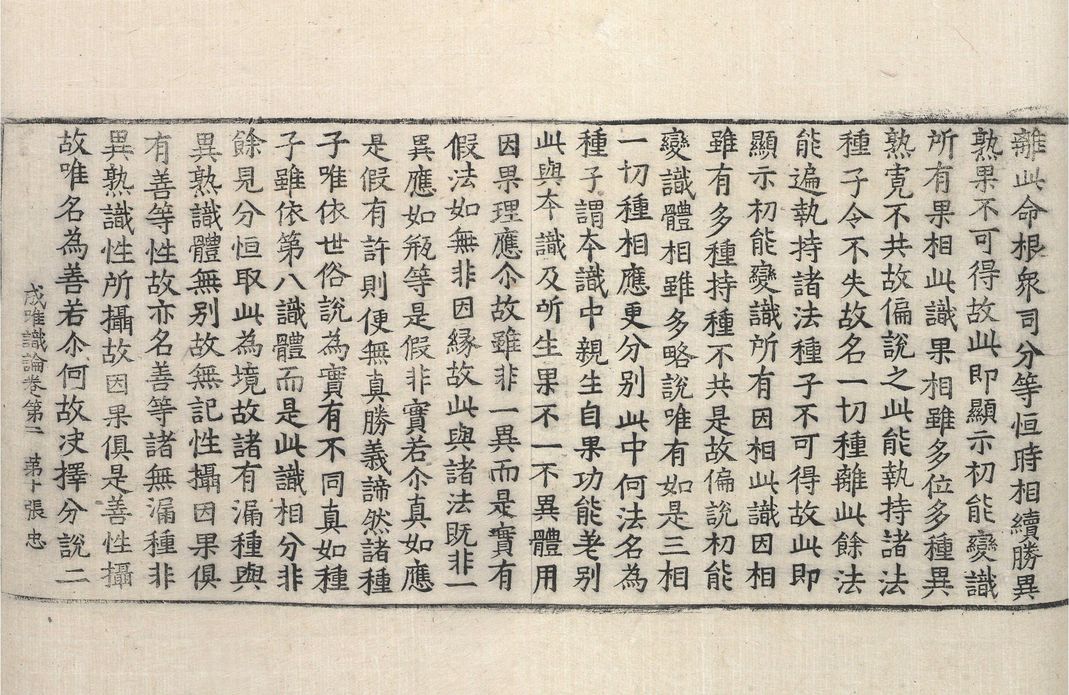 離此命根衆司分等恒時相續勝異
熟果不可得故此即顯示初能變識
所有果相此識果相雖多位多種異
熟寛不共故偏說之此能執持諸法
種子令不失故名一切種離此餘法
能遍執持諸法種子不可得故此即
顯示初能變識所有因相此識因相
雖有多種持種不共是故偏說初能
變識體相雖多略說唯有如是三相
一切種相應更分別此中何法名為
種子謂本識中親生自果功能差別
此與本識及所生果不一不異體用
因果理應尒故雖非一異而是實有
假法如無非因緣故此與諸法既非一
異應如瓶等是假非實若尒真如應
是假有許則便無真勝義諦然諸種
子唯依世俗說為實有不同真如種
子雖依第八識體而是此識相分非
餘見分恒取此為境故諸有漏種與
異熟識體無別故無記性攝因果俱
有善等性故亦名善等諸無漏種非
異熟識性所攝故因果俱是善性攝
故唯名為善若尒何故决擇分說二
成唯識論卷第二 第十張 忠